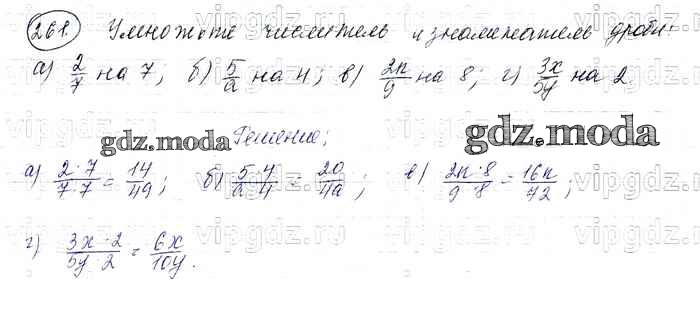 261. Умножьте числитель и знаменатель дроби:
а) 2/7 на 7; б) 5/a на 4; в) 2n/9 на 8; г) 3x/5y на 2
gdz.moda Решение; gdz.moda
а) 2·7/7·7 = 14/49; б) 5·4/a·4 = 20/4a; в) 2n·8/9·8 = 16n/72;
vipgdz.ru vipgdz.ru vipgdz.ru
г) 3x·2/5y·2 = 6x/10y.